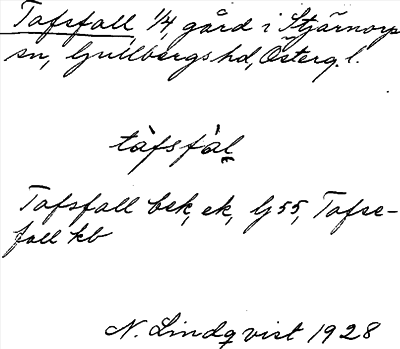 Tafsfall, 1/4, gård i Stjärnorp
sn, Gullbergs hd, Österg. l.
tàfsfàl
Tafsfall bsk, ek, G 55, Tafse-
fall kb
N. Lindqvist 1928